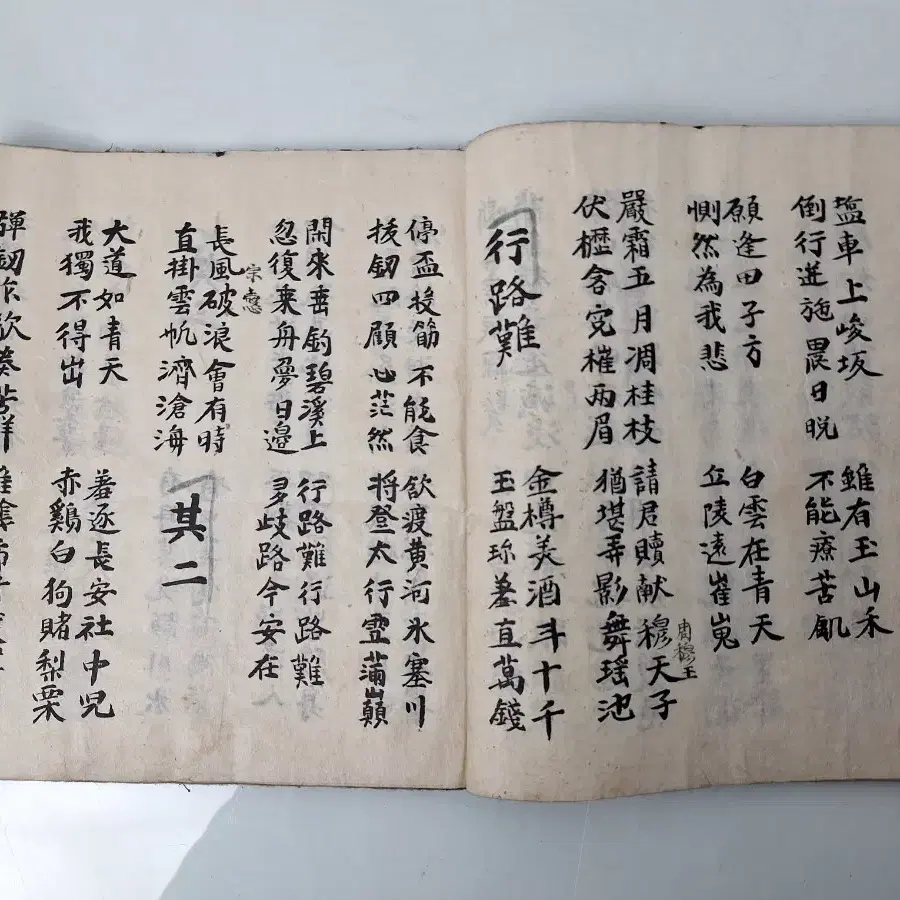 塩車上峻坂
倒行逆施畏日晩
雖有玉山禾
不能療苦飢
願逢田子方
惻然為我悲
白雲在青天
丘陵遠崔嵬
嚴霜五月凋桂枝
伏櫪含寃摧兩眉
請君贖献穆天子
周穆王
猶堪弄影舞瑶池
行路難
金樽美酒斗十千
玉盤珎羞直萬錢
停盃投筯不能食
拔釼四顧心茫然
欲渡黄河氷塞川
將登太行雪滿巓
閑來垂釣碧溪上
忽復乗舟夢日邊
行路難行路難
多歧路今安在
長風破浪會有時
宗愨
直掛雲帆濟滄海
其二
大道如青天
我獨不得出
羞逐長安社中児
赤鷄白狗賭梨栗
彈釼作歌奏苦